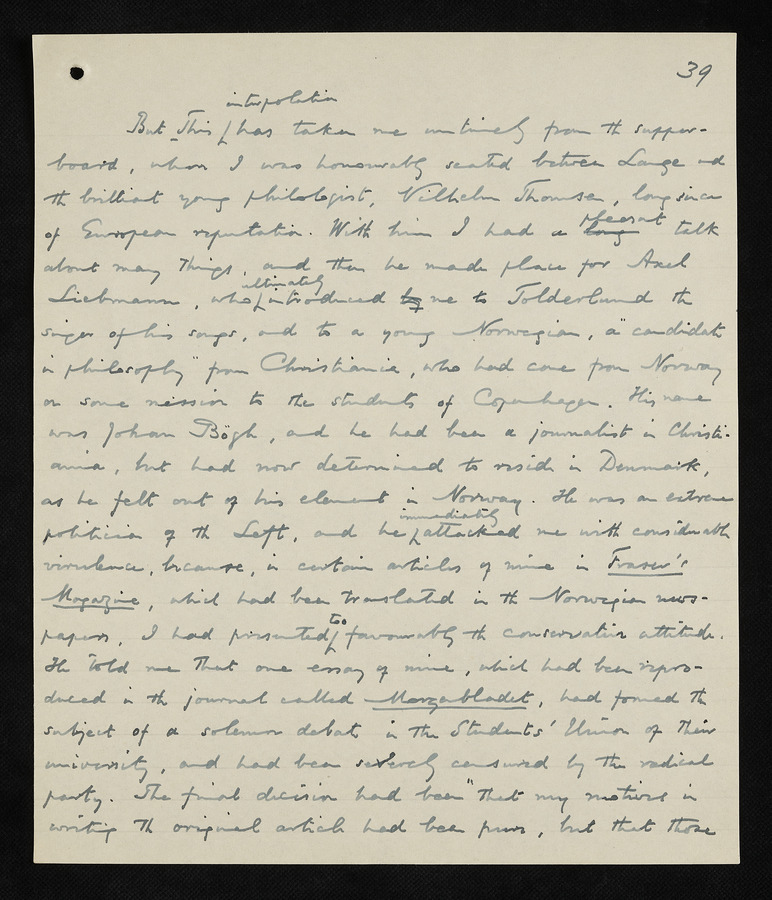 39
interpolation
But this has taken me untimely from the supper-
board, when I was honourably seated between Lange and
the brilliant young philologist, Vilhelm Thomsen, long since
of European reputation. With him I had a long pleasant talk
about many things, and then he made place for Axel
Liebmann, who ultimately introduced by me to Tolderlund the
singer of his songs, and to a young Norwegian, a "candidate
in philosophy" from Christiania, who had come from Norway
on some mission to the students of Copenhagen. His name
was Johan Bögh, and he had been a journalist in Christi-
ania, but had now determined to reside in Denmark,
as he felt out of his element in Norway. He was an extreme
politician of the Left, and he immediately attacked me with considerable
virulence, because, in certain articles of mine in Fraser's
Magazine, which had been translated in the Norwegian news-
papers, I had presented too favourably the conservative attitude.
He told me that one essay of mine, which had been repro-
duced in the journal called Morgenbladet, had formed the
subject of a solemn debate in the Students' Union of their
university, and had been severely censured by the radical
party. The final decision had been "that my motives in
writing the original article had been pure, but that those